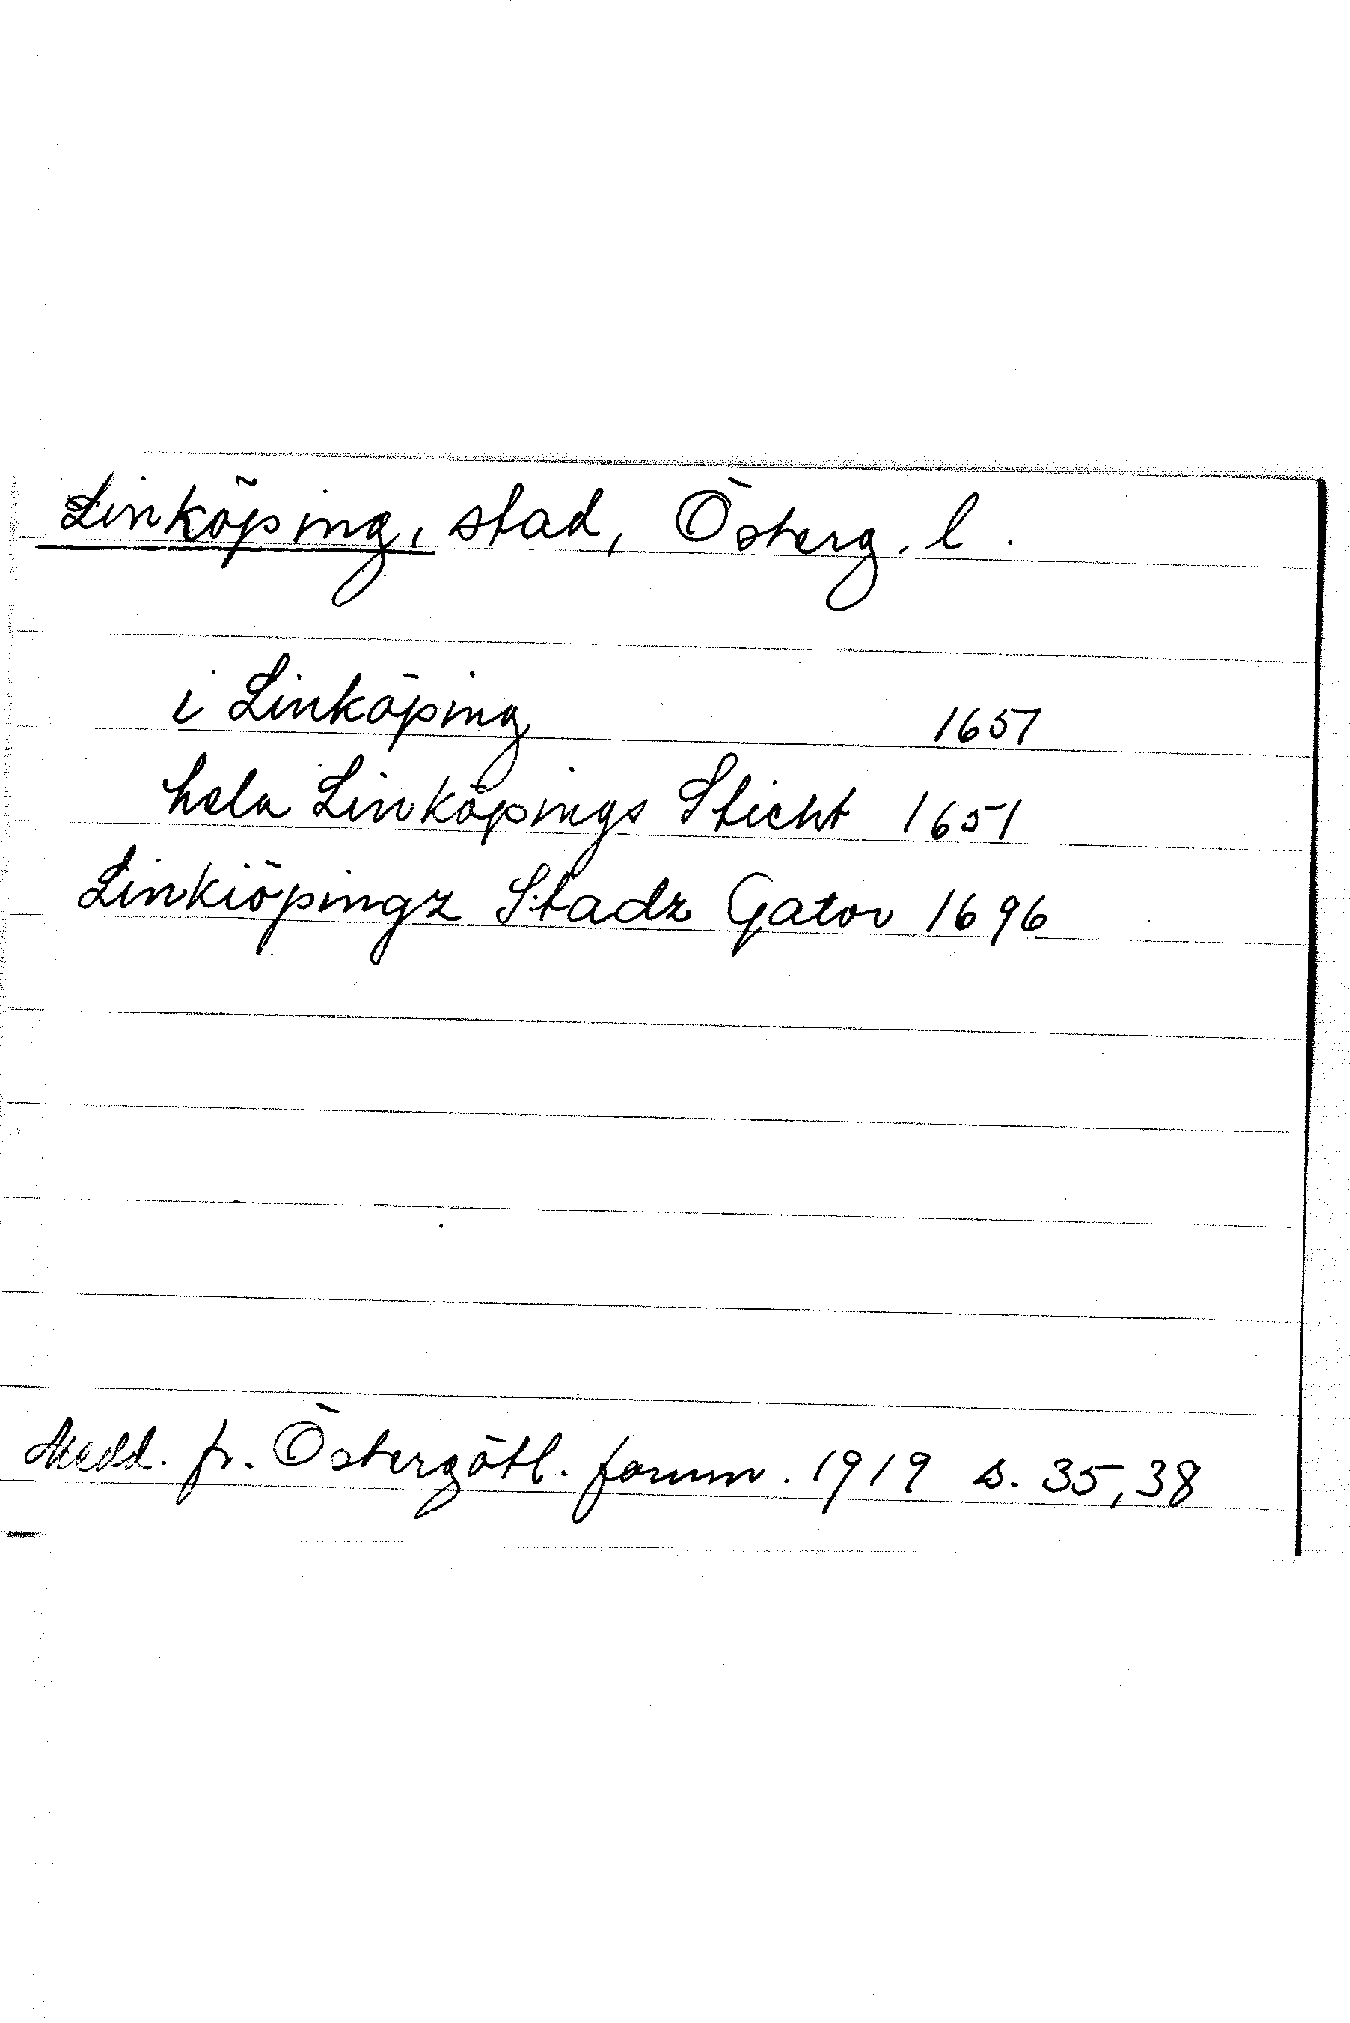 Linköping, stad, Österg. l.
i Linköping 1657
hela Linköpings Sticht 1651
Linkiöpingz Stadz Gator 1696
Medd. fr. Östergötl. fornm. 1919 s. 35, 38